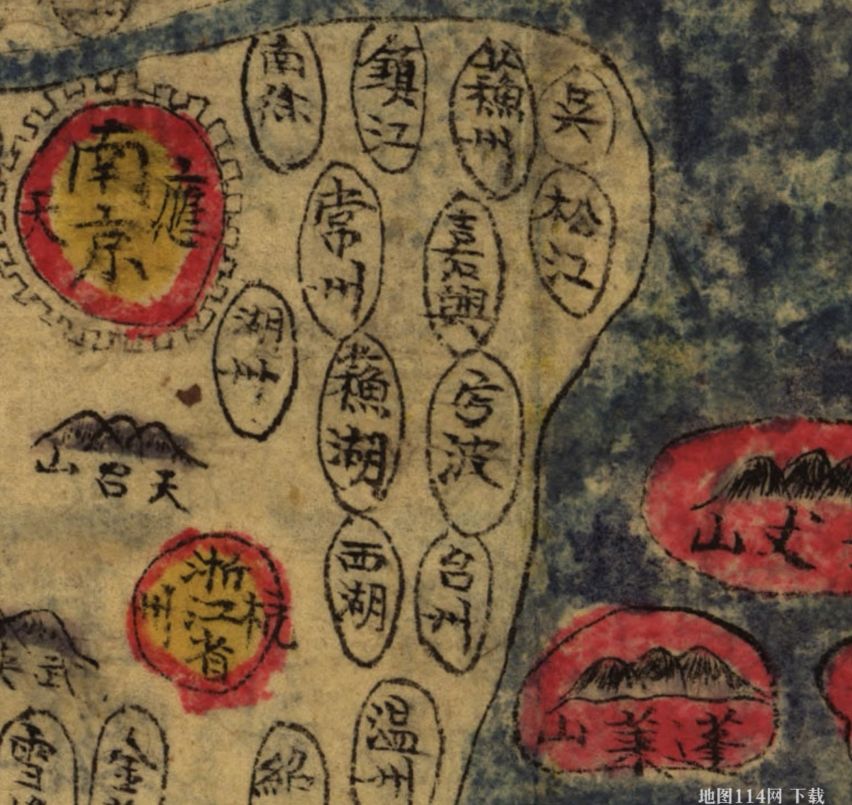 南徐
鎮江
蘇州
吳
松江
南京
應天
常州
嘉興
湖州
蘇湖
寧波
天台山
西湖
台州
浙江省
杭州
丈山
蓬萊山
武
溫州
紹
金
雪
地图114网 下载